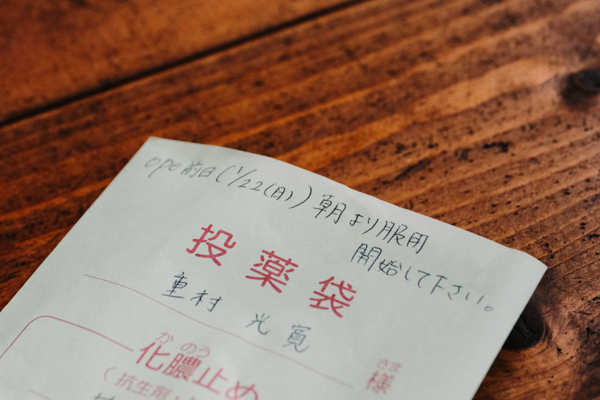 ope前日(1/22(日))朝より服用
開始して下さい。
投薬袋
重村 光寛 様
さま
かのう
化膿止め
(抗生剤